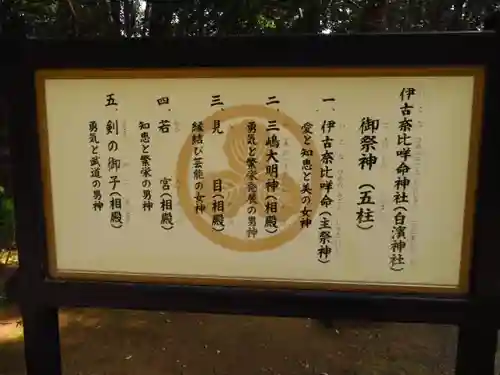 伊古奈比咩命神社(白濱神社)
御祭神(五柱)
一、伊古奈比咩命(主祭神)
愛と知恵と美の女神
二、三嶋大明神(相殿)
勇気と繁栄発展の男神
三、見目(相殿)
縁結び芸能の女神
四、若宮(相殿)
知恵と繁栄の男神
五、剣の御子(相殿)
勇気と武道の男神